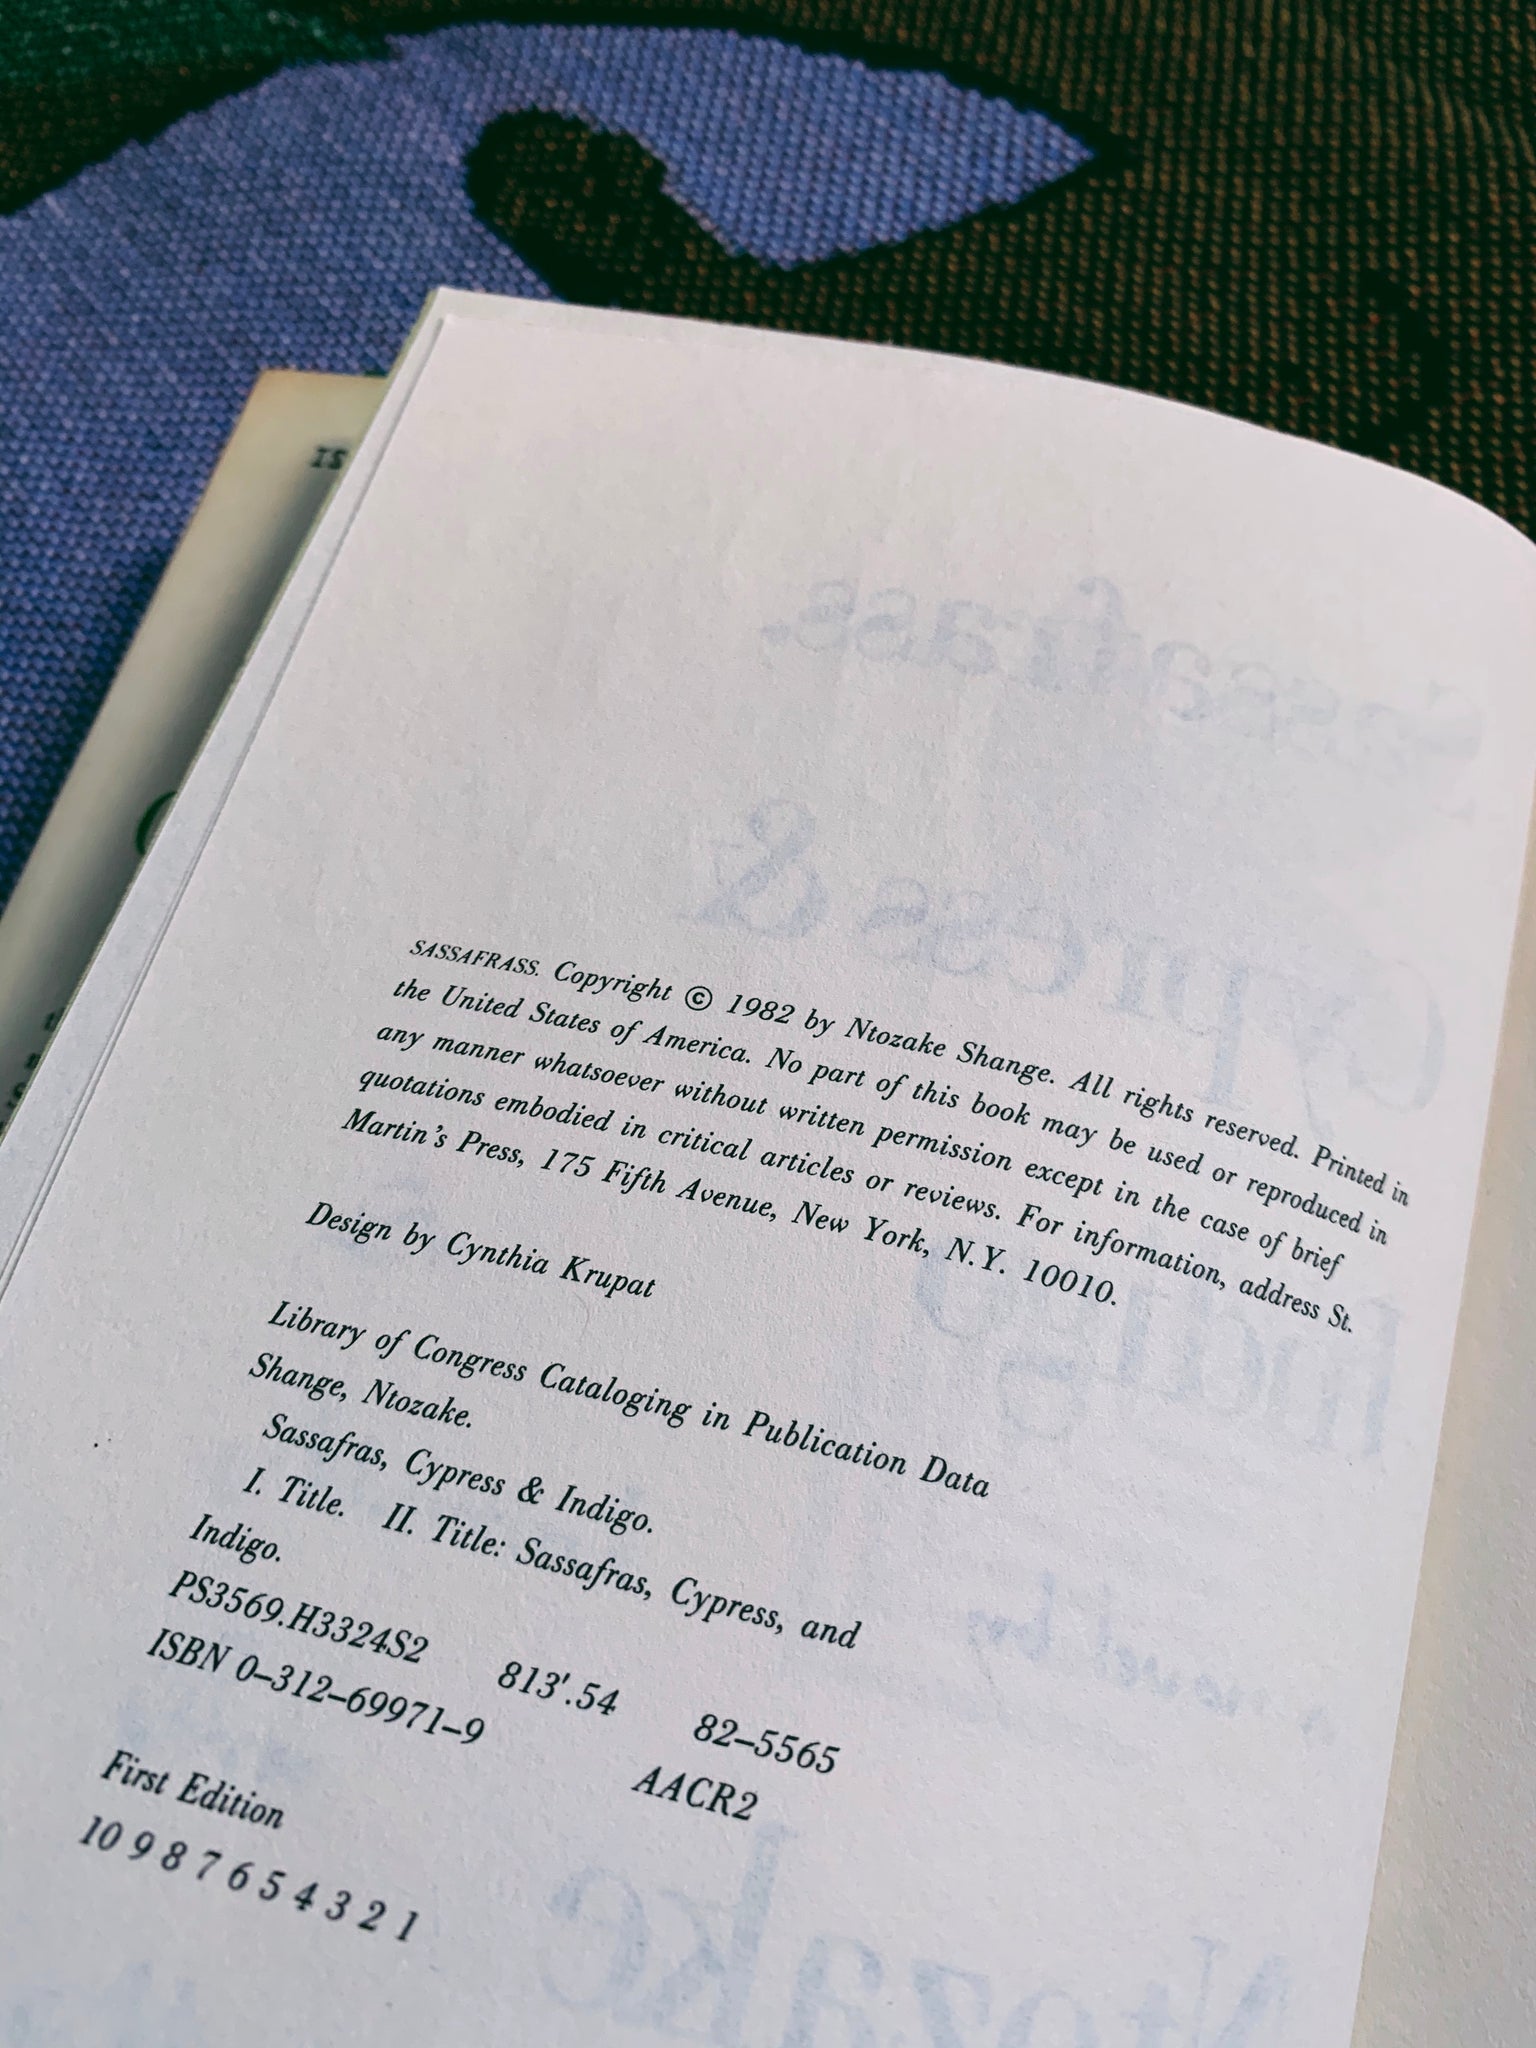 SASSAFRASS. Copyright © 1982 by Ntozake Shange. All rights reserved. Printed in
the United States of America. No part of this book may be used or reproduced in
any manner whatsoever without written permission except in the case of brief
quotations embodied in critical articles or reviews. For information, address St.
Martin's Press, 175 Fifth Avenue, New York, N.Y. 10010.
Design by Cynthia Krupat
Library of Congress Cataloging in Publication Data
Shange, Ntozake.
Sassafras, Cypress & Indigo.
I. Title. II. Title: Sassafras, Cypress, and
Indigo.
PS3569.H3324S2 813'.54 82–5565
ISBN 0–312–69971–9 AACR2
First Edition
10 9 8 7 6 5 4 3 2 1